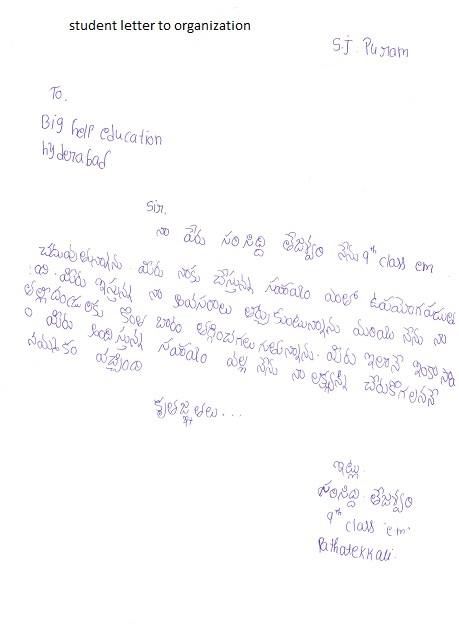 student letter to organization
S.J. Puram
To,
Big help education
hyderabad
Sir,
నా పేరు సంసిద్ది తేజశ్వం నేను 9th class em
చదువుతున్నాను. మీరు నాకు చేస్తున్న సహాయం ఎంతో ఉపయోగపడుతు
ంది. మీరు ఇస్తున్న నా అవసరాలు తీర్చుకుంటున్నాను మరియు నేను నా
తల్లిదండ్రులకు కొంత బారం తగ్గించగలుగుతున్నాను. మీరు ఇలానే ఇంకా
మీరు అందిస్తున్న సహాయం వల్ల నేను నా లక్ష్యాన్ని చేరుకోగలననే
నమ్మకం వచ్చింది
కృతజ్ఞతలు...
ఇట్లు
సంసిద్ది. తేజశ్వం
9th class em.
Pathatekkali.